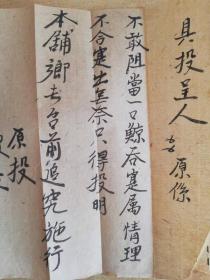 具投呈人 原係
不敢阻當一口鯨吞寔属情理
不合寔出無奈只得投明
本舖鄉去台前追究施行
原投